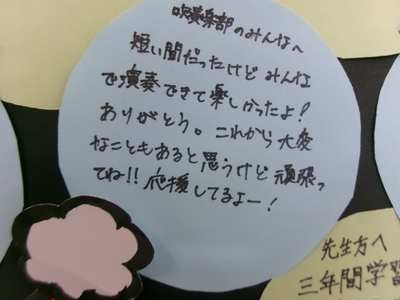 吹奏楽部のみんなへ
短い間だったけどみんな
で演奏できて楽しかったよ!
ありがとう。これから大変
なこともあると思うけど頑張っ
てね!!応援してるよー!
先生方へ
三年間学習